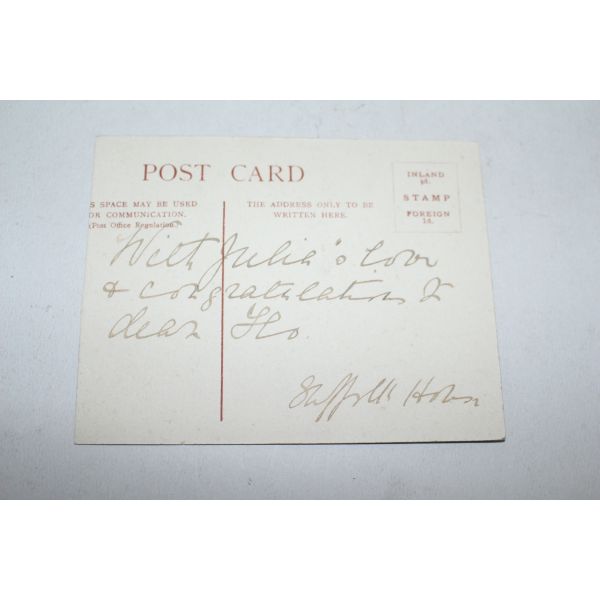 POST CARD
S SPACE MAY BE USED
OR COMMUNICATION.
(Post Office Regulation.)
THE ADDRESS ONLY TO BE
WRITTEN HERE.
INLAND
½d.
STAMP
FOREIGN
1d.
With Julia's love
& congratulations to
dear Flo.
Suffolk House